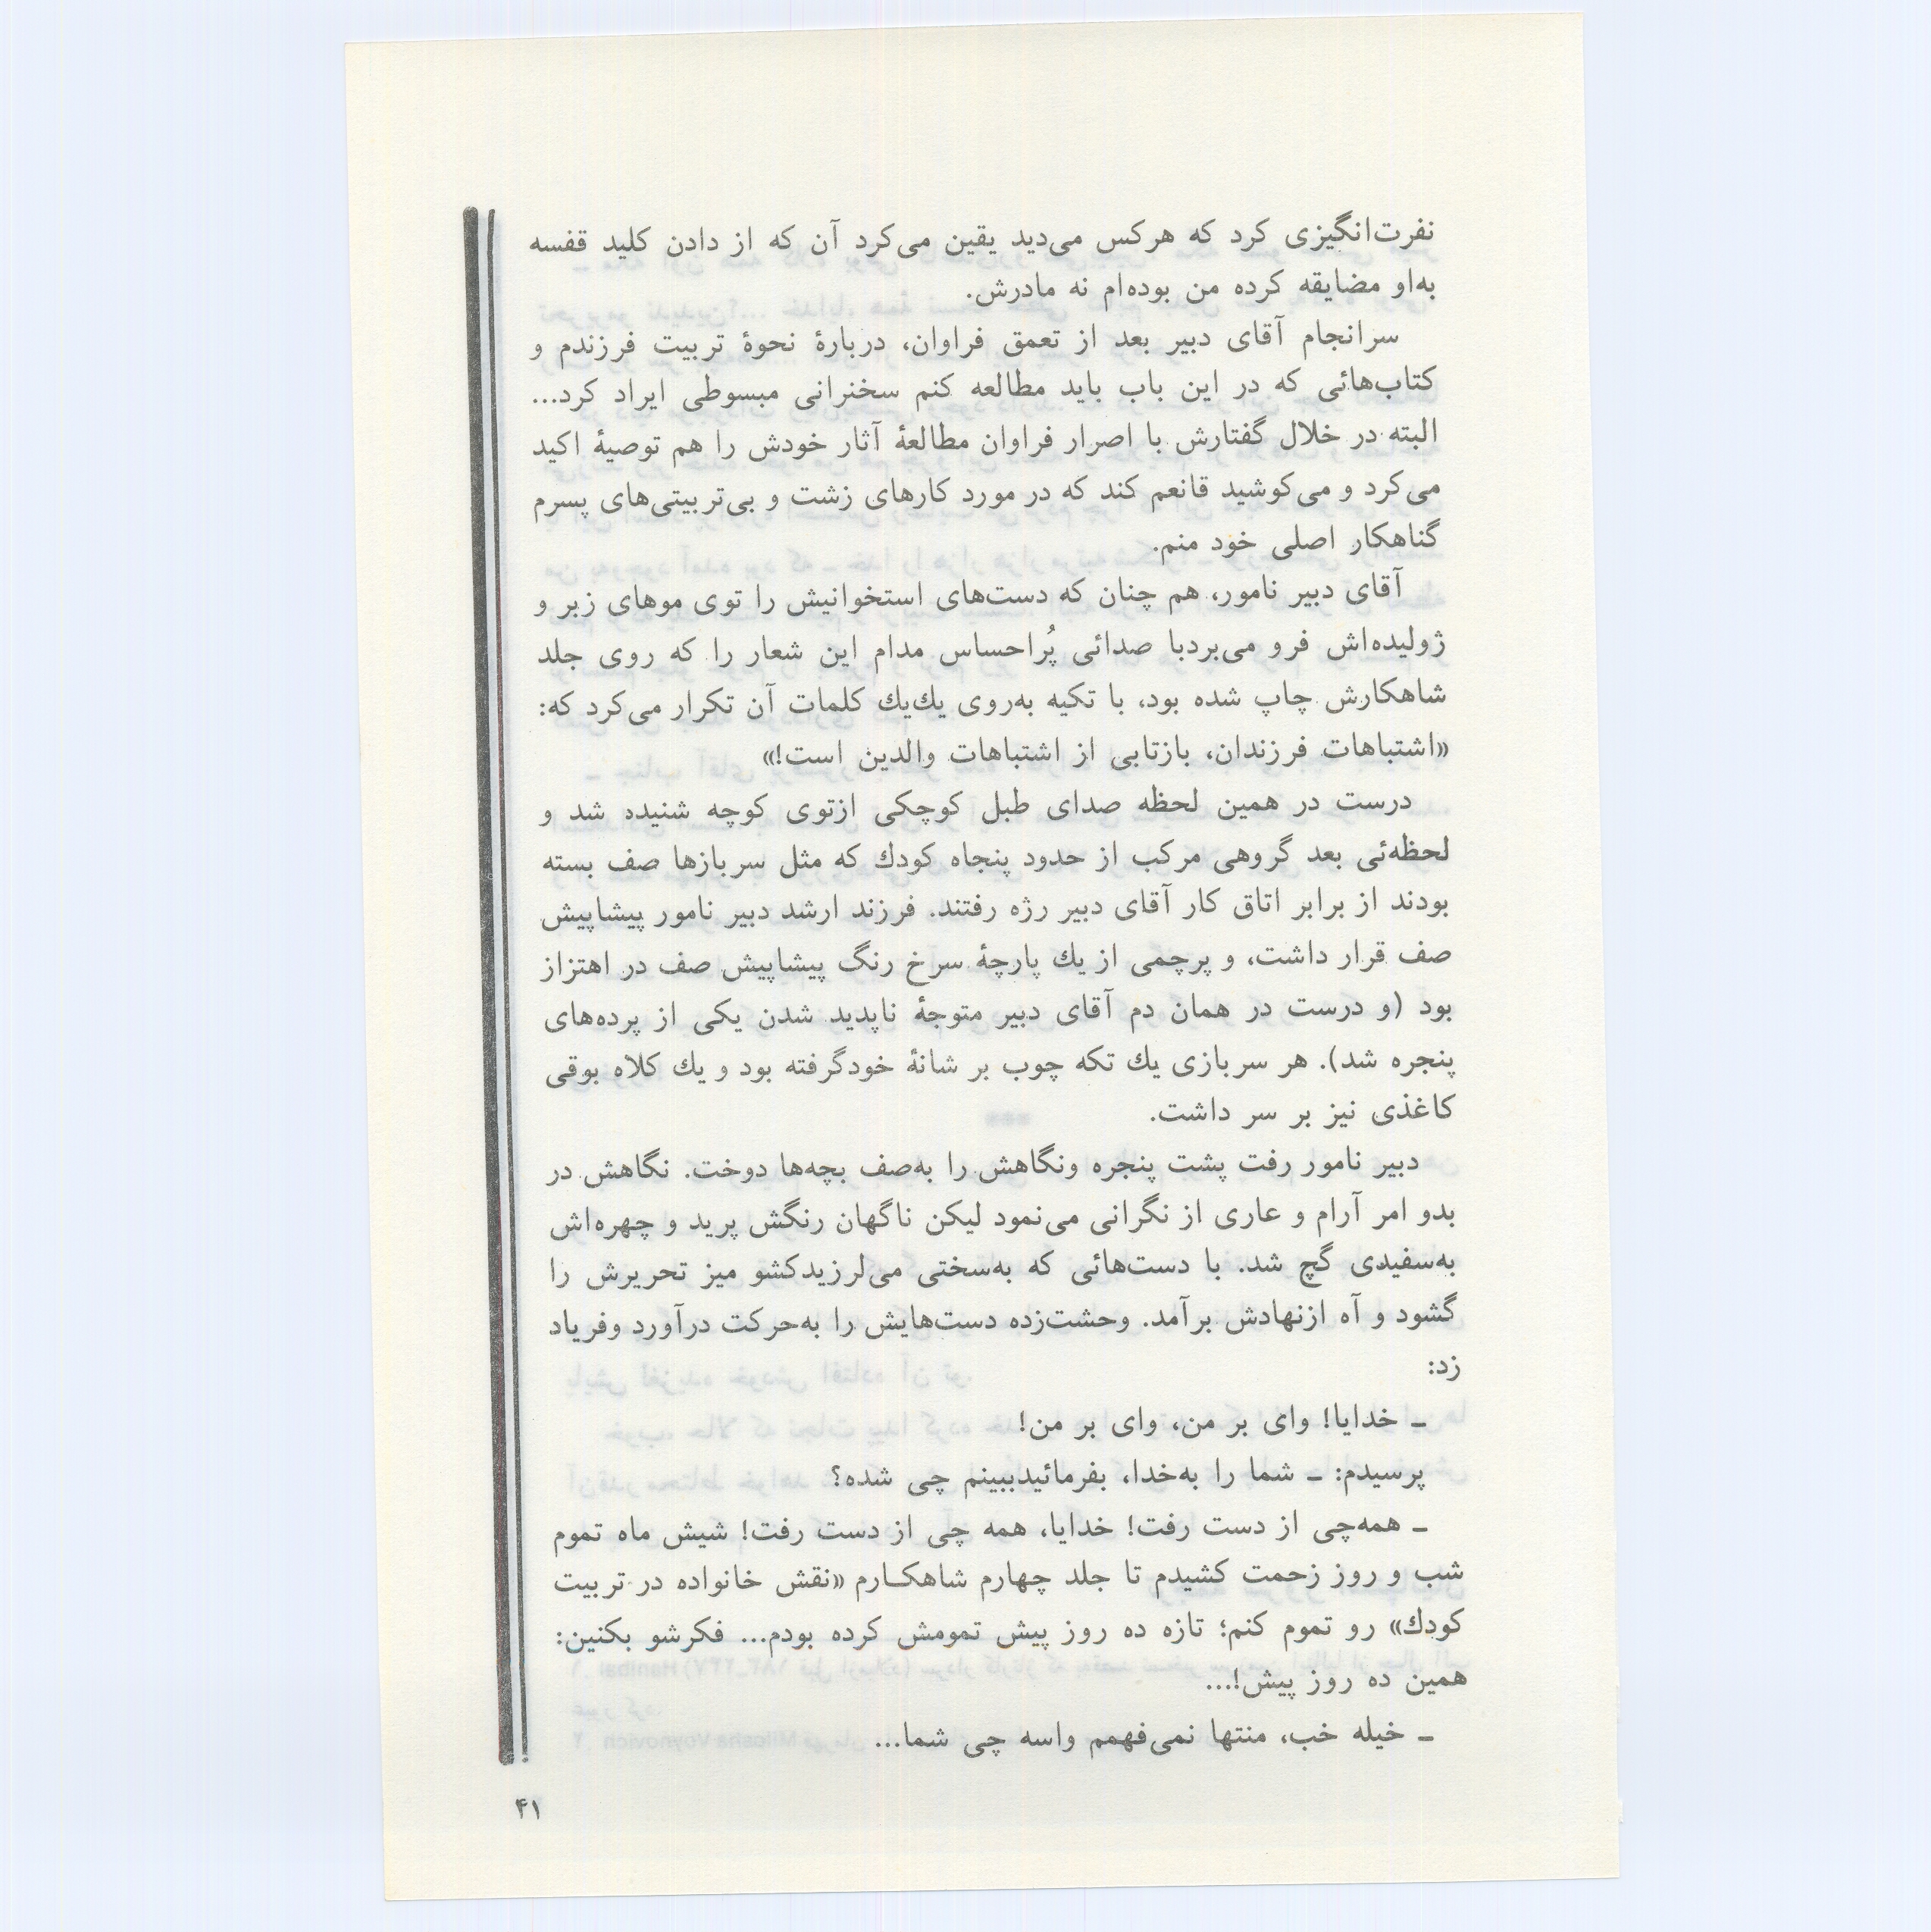 نفرت‌انگیزی کرد که هرکس می‌دید یقین می‌کرد آن که از دادن کلید قفسه
به‌او مضایقه کرده من بوده‌ام نه مادرش.
سرانجام آقای دبیر بعد از تعمق فراوان، دربارهٔ نحوهٔ تربیت فرزندم و
کتاب‌هائی که در این باب باید مطالعه کنم سخنرانی مبسوطی ایراد کرد...
البته در خلال گفتارش با اصرار فراوان مطالعهٔ آثار خودش را هم توصیهٔ اکید
می‌کرد و می‌کوشید قانعم کند که در مورد کارهای زشت و بی‌تربیتی‌های پسرم
گناهکار اصلی خود منم.
آقای دبیر نامور، هم چنان که دست‌های استخوانیش را توی موهای زبر و
ژولیده‌اش فرو می‌بردبا صدائی پُراحساس مدام این شعار را که روی جلد
شاهکارش چاپ شده بود، با تکیه به‌روی یك‌یك کلمات آن تکرار می‌کرد که:
«اشتباهات فرزندان، بازتابی از اشتباهات والدین است!»
درست در همین لحظه صدای طبل کوچکی ازتوی کوچه شنیده شد و
لحظه‌ئی بعد گروهی مرکب از حدود پنجاه کودك که مثل سربازها صف بسته
بودند از برابر اتاق کار آقای دبیر رژه رفتند. فرزند ارشد دبیر نامور پیشاپیش
صف قرار داشت، و پرچمی از یك پارچهٔ سرخ رنگ پیشاپیش صف در اهتزاز
بود (و درست در همان دم آقای دبیر متوجهٔ ناپدید شدن یکی از پرده‌های
پنجره شد). هر سربازی یك تکه چوب بر شانهٔ خودگرفته بود و یك کلاه بوقی
کاغذی نیز بر سر داشت.
دبیر نامور رفت پشت پنجره ونگاهش را به‌صف بچه‌ها دوخت. نگاهش در
بدو امر آرام و عاری از نگرانی می‌نمود لیکن ناگهان رنگش پرید و چهره‌اش
به‌سفیدی گچ شد. با دست‌هائی که به‌سختی می‌لرزیدکشو میز تحریرش را
گشود و آه ازنهادش برآمد. وحشت‌زده دست‌هایش را به‌حرکت درآورد وفریاد
زد:
ـ خدایا! وای بر من، وای بر من!
پرسیدم: ـ شما را به‌خدا، بفرمائیدببینم چی شده؟
ـ همه‌چی از دست رفت! خدایا، همه چی از دست رفت! شیش ماه تموم
شب و روز زحمت کشیدم تا جلد چهارم شاهکـارم «نقش خانواده در تربیت
کودك» رو تموم کنم؛ تازه ده روز پیش تمومش کرده بودم... فکرشو بکنین:
همین ده روز پیش!...
ـ خیله خب، منتها نمی‌فهمم واسه چی شما...
۴۱